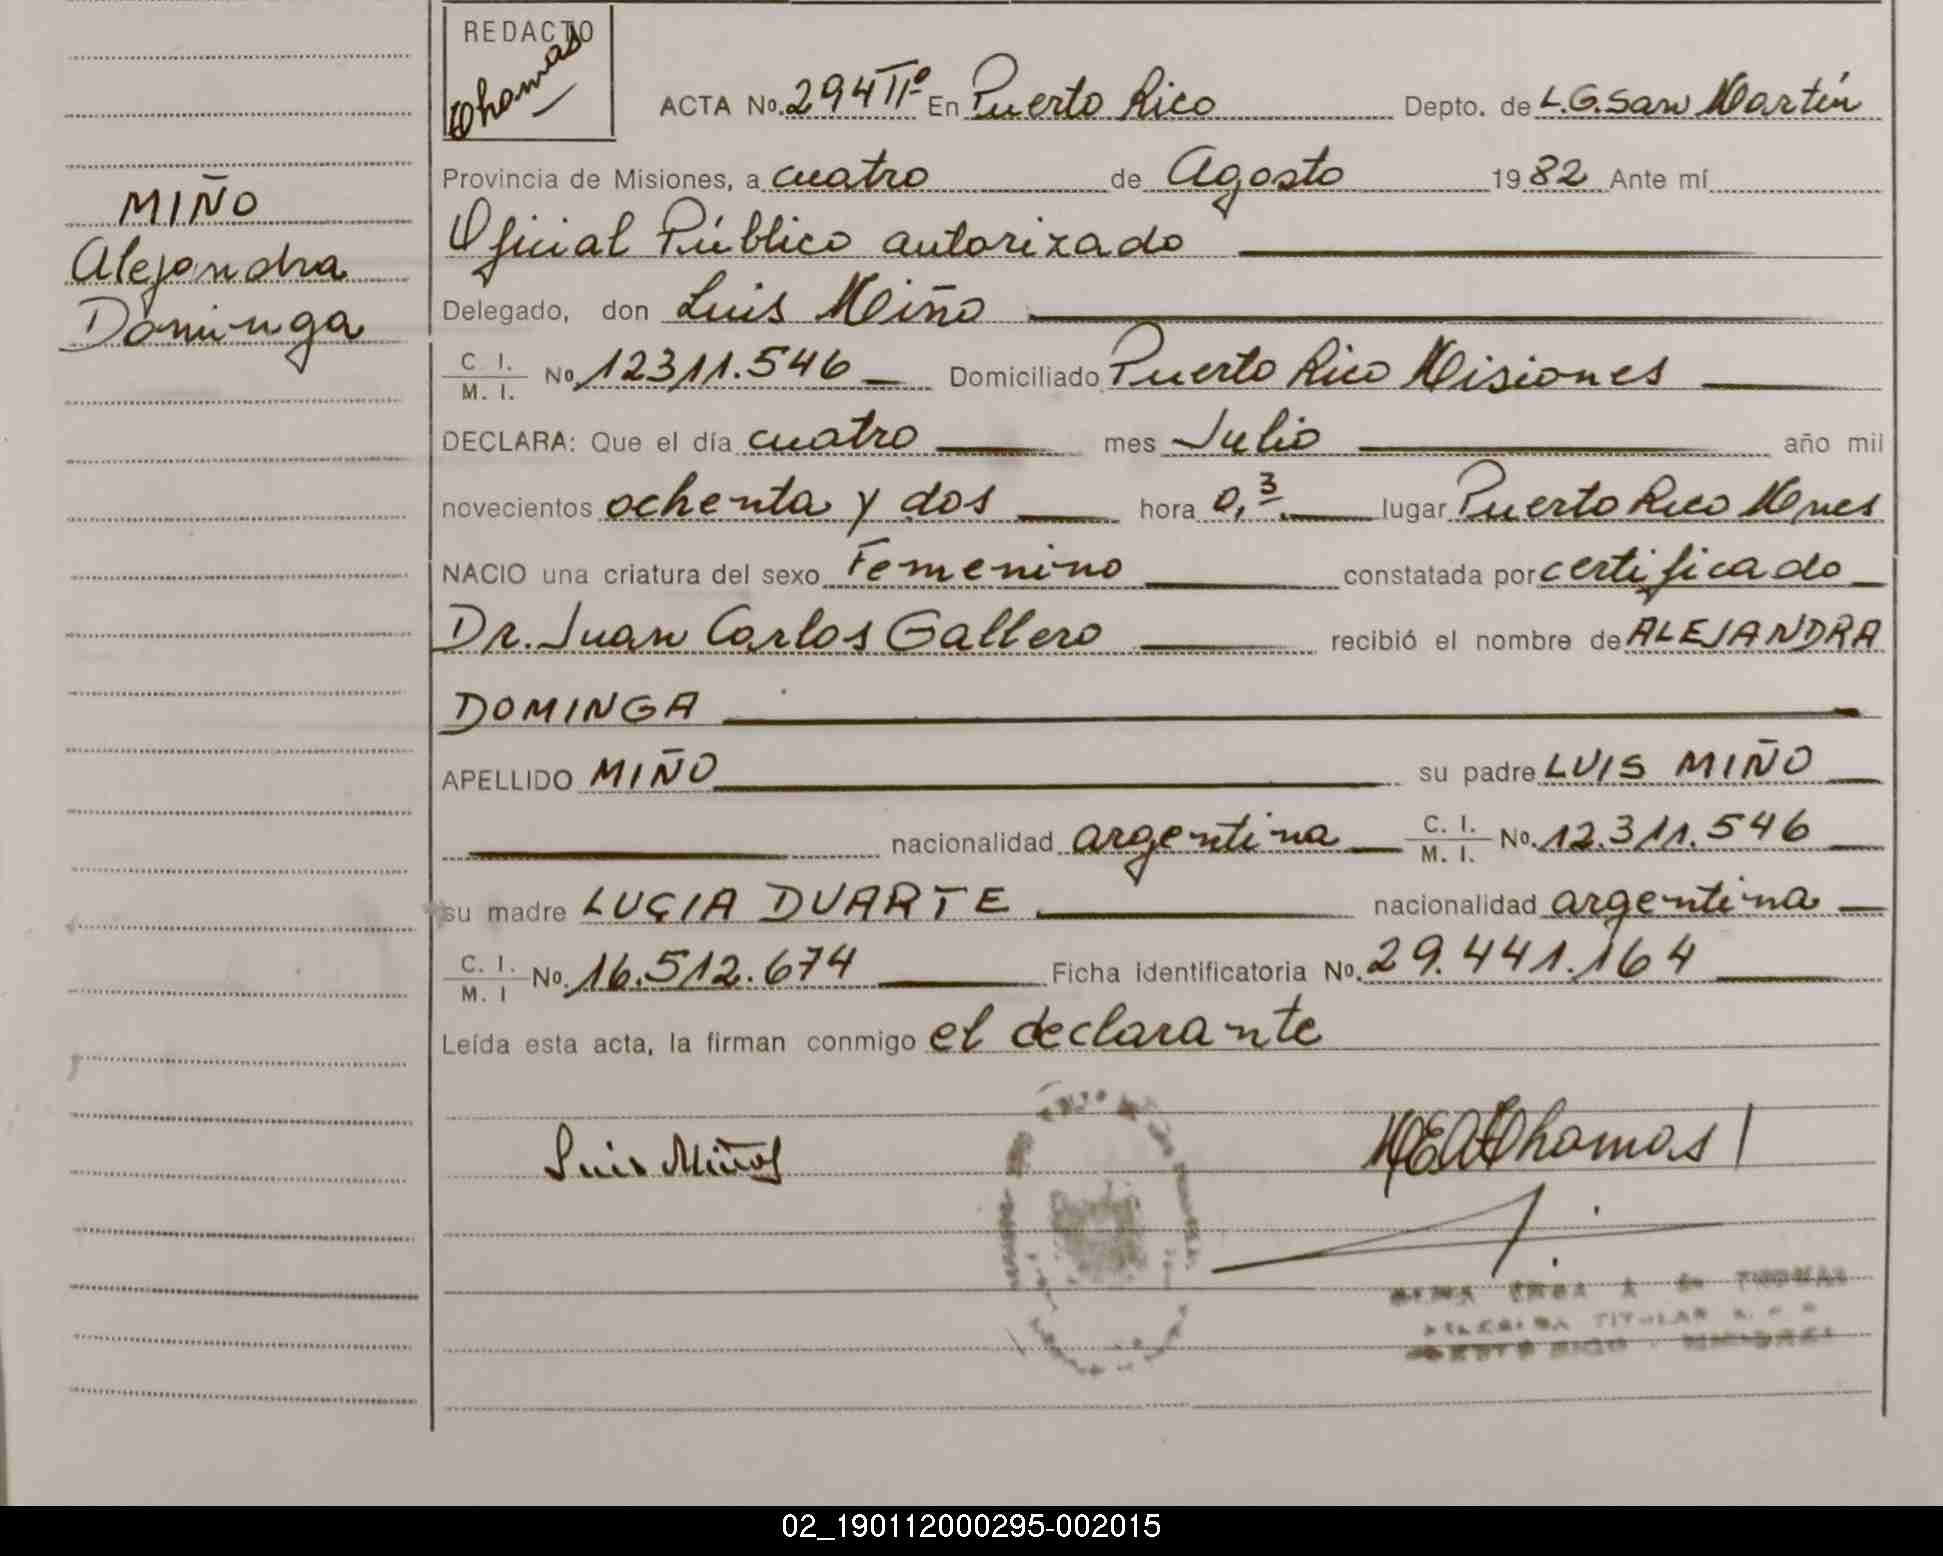 REDACTO
Thomas
ACTA No. 294 Tº II En Puerto Rico Depto. de L.G. San Martín
Provincia de Misiones, a cuatro de Agosto 1982 Ante mí
Oficial Público autorizado
Delegado, don Luis Miño
C. I.
M. I. No 12311.546 Domiciliado Puerto Rico Misiones
DECLARA: Que el día cuatro mes Julio año mil
novecientos ochenta y dos hora 0,3 lugar Puerto Rico Mnes
NACIO una criatura del sexo Femenino constatada por certificado
Dr. Juan Carlos Gallero recibió el nombre de ALEJANDRA
DOMINGA
APELLIDO MIÑO su padre LUIS MIÑO
nacionalidad argentina C. I. M. I. No. 12.311.546
su madre LUCIA DUARTE nacionalidad argentina
C. I. M. I No. 16.512.674 Ficha identificatoria No. 29.441.164
Leída esta acta, la firman conmigo el declarante
Luis Miño
Thomas
MIÑO
Alejandra
Dominga
02_190112000295-002015